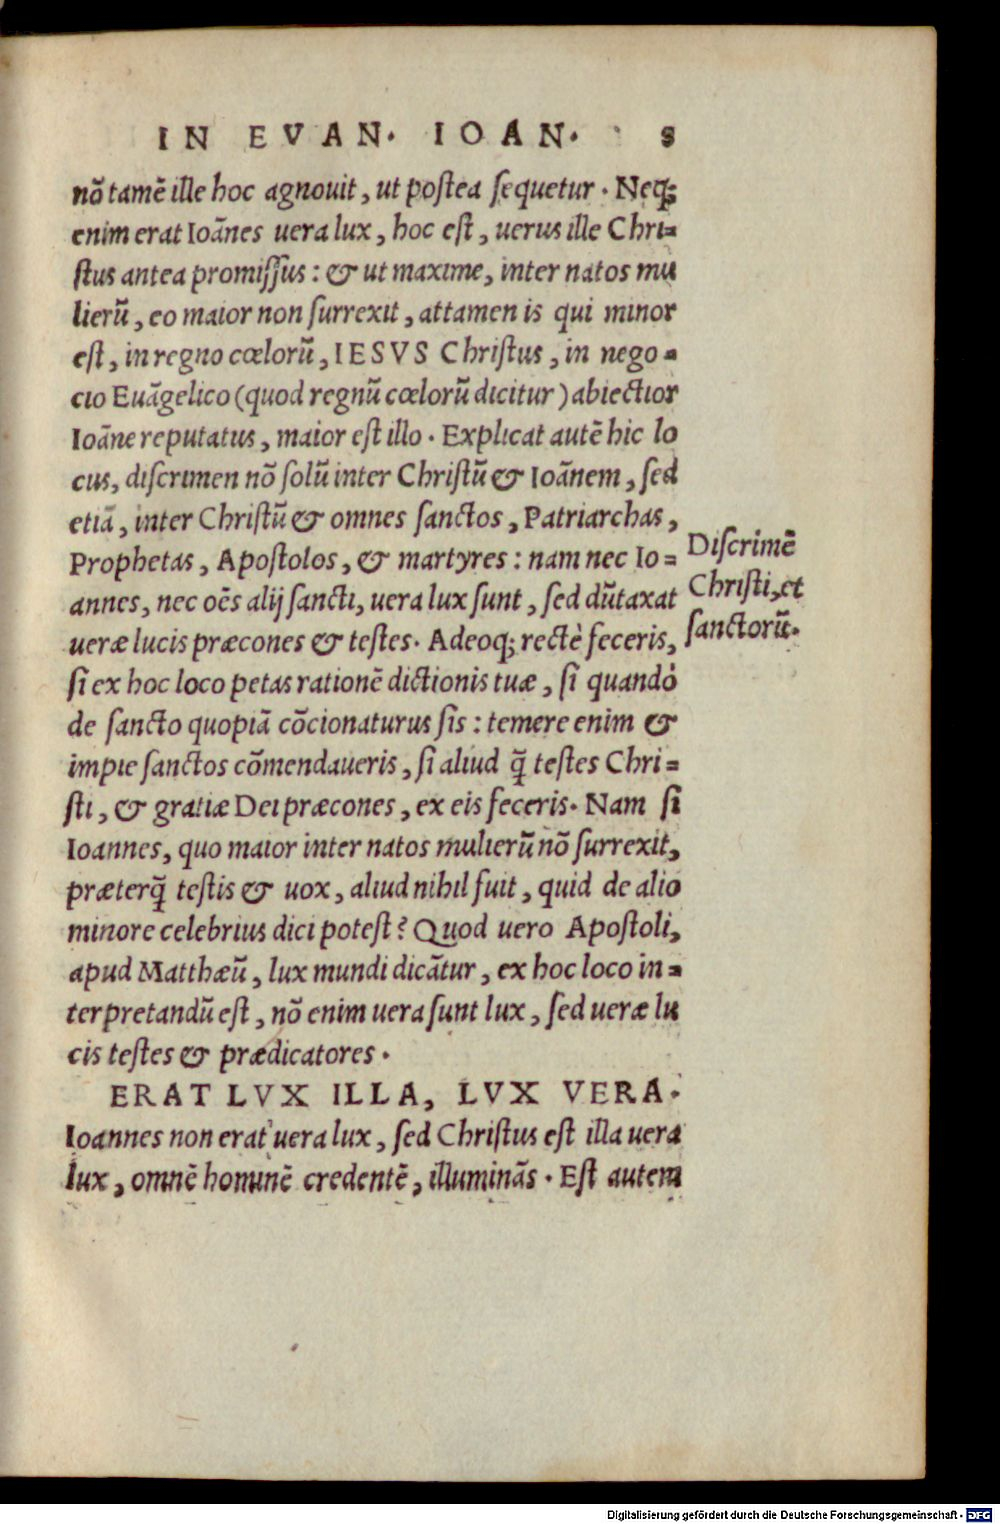 IN EVAN. IOAN. 8
nō tamē ille hoc agnouit, ut postea sequetur. Neq;
enim erat Ioānes uera lux, hoc est, uerus ille Chri=
stus antea promissus: & ut maxime, inter natos mu
lierū, eo maior non surrexit, attamen is qui minor
est, in regno cœlorū, IESVS Christus, in nego=
cio Euāgelico (quod regnū cœlorū dicitur) abiectior
Ioāne reputatus, maior est illo. Explicat autē hic lo
cus, discrimen nō solū inter Christū & Ioānem, sed
etiā, inter Christū & omnes sanctos, Patriarchas,
Prophetas, Apostolos, & martyres: nam nec Io=
annes, nec oēs alij sancti, uera lux sunt, sed dūtaxat
ueræ lucis præcones & testes. Adeoq; rectè feceris,
si ex hoc loco petas rationē dictionis tuæ, si quandò
de sancto quopiā cōcionaturus sis: temere enim &
impie sanctos cōmendaueris, si aliud q̄ testes Chri=
sti, & gratiæ Dei præcones, ex eis feceris. Nam si
Ioannes, quo maior inter natos mulierū nō surrexit,
præterq̄ testis & uox, aliud nihil fuit, quid de alio
minore celebrius dici potest? Quod uero Apostoli,
apud Matthæū, lux mundi dicātur, ex hoc loco in=
terpretandū est, nō enim uera sunt lux, sed ueræ lu
cis testes & prædicatores.
ERAT LVX ILLA, LVX VERA.
Ioannes non erat uera lux, sed Christus est illa uera
lux, omnē hominē credentē, illuminās. Est autem
Discrimē
Christi, et
sanctorū.
Digitalisierung gefördert durch die Deutsche Forschungsgemeinschaft - DFG